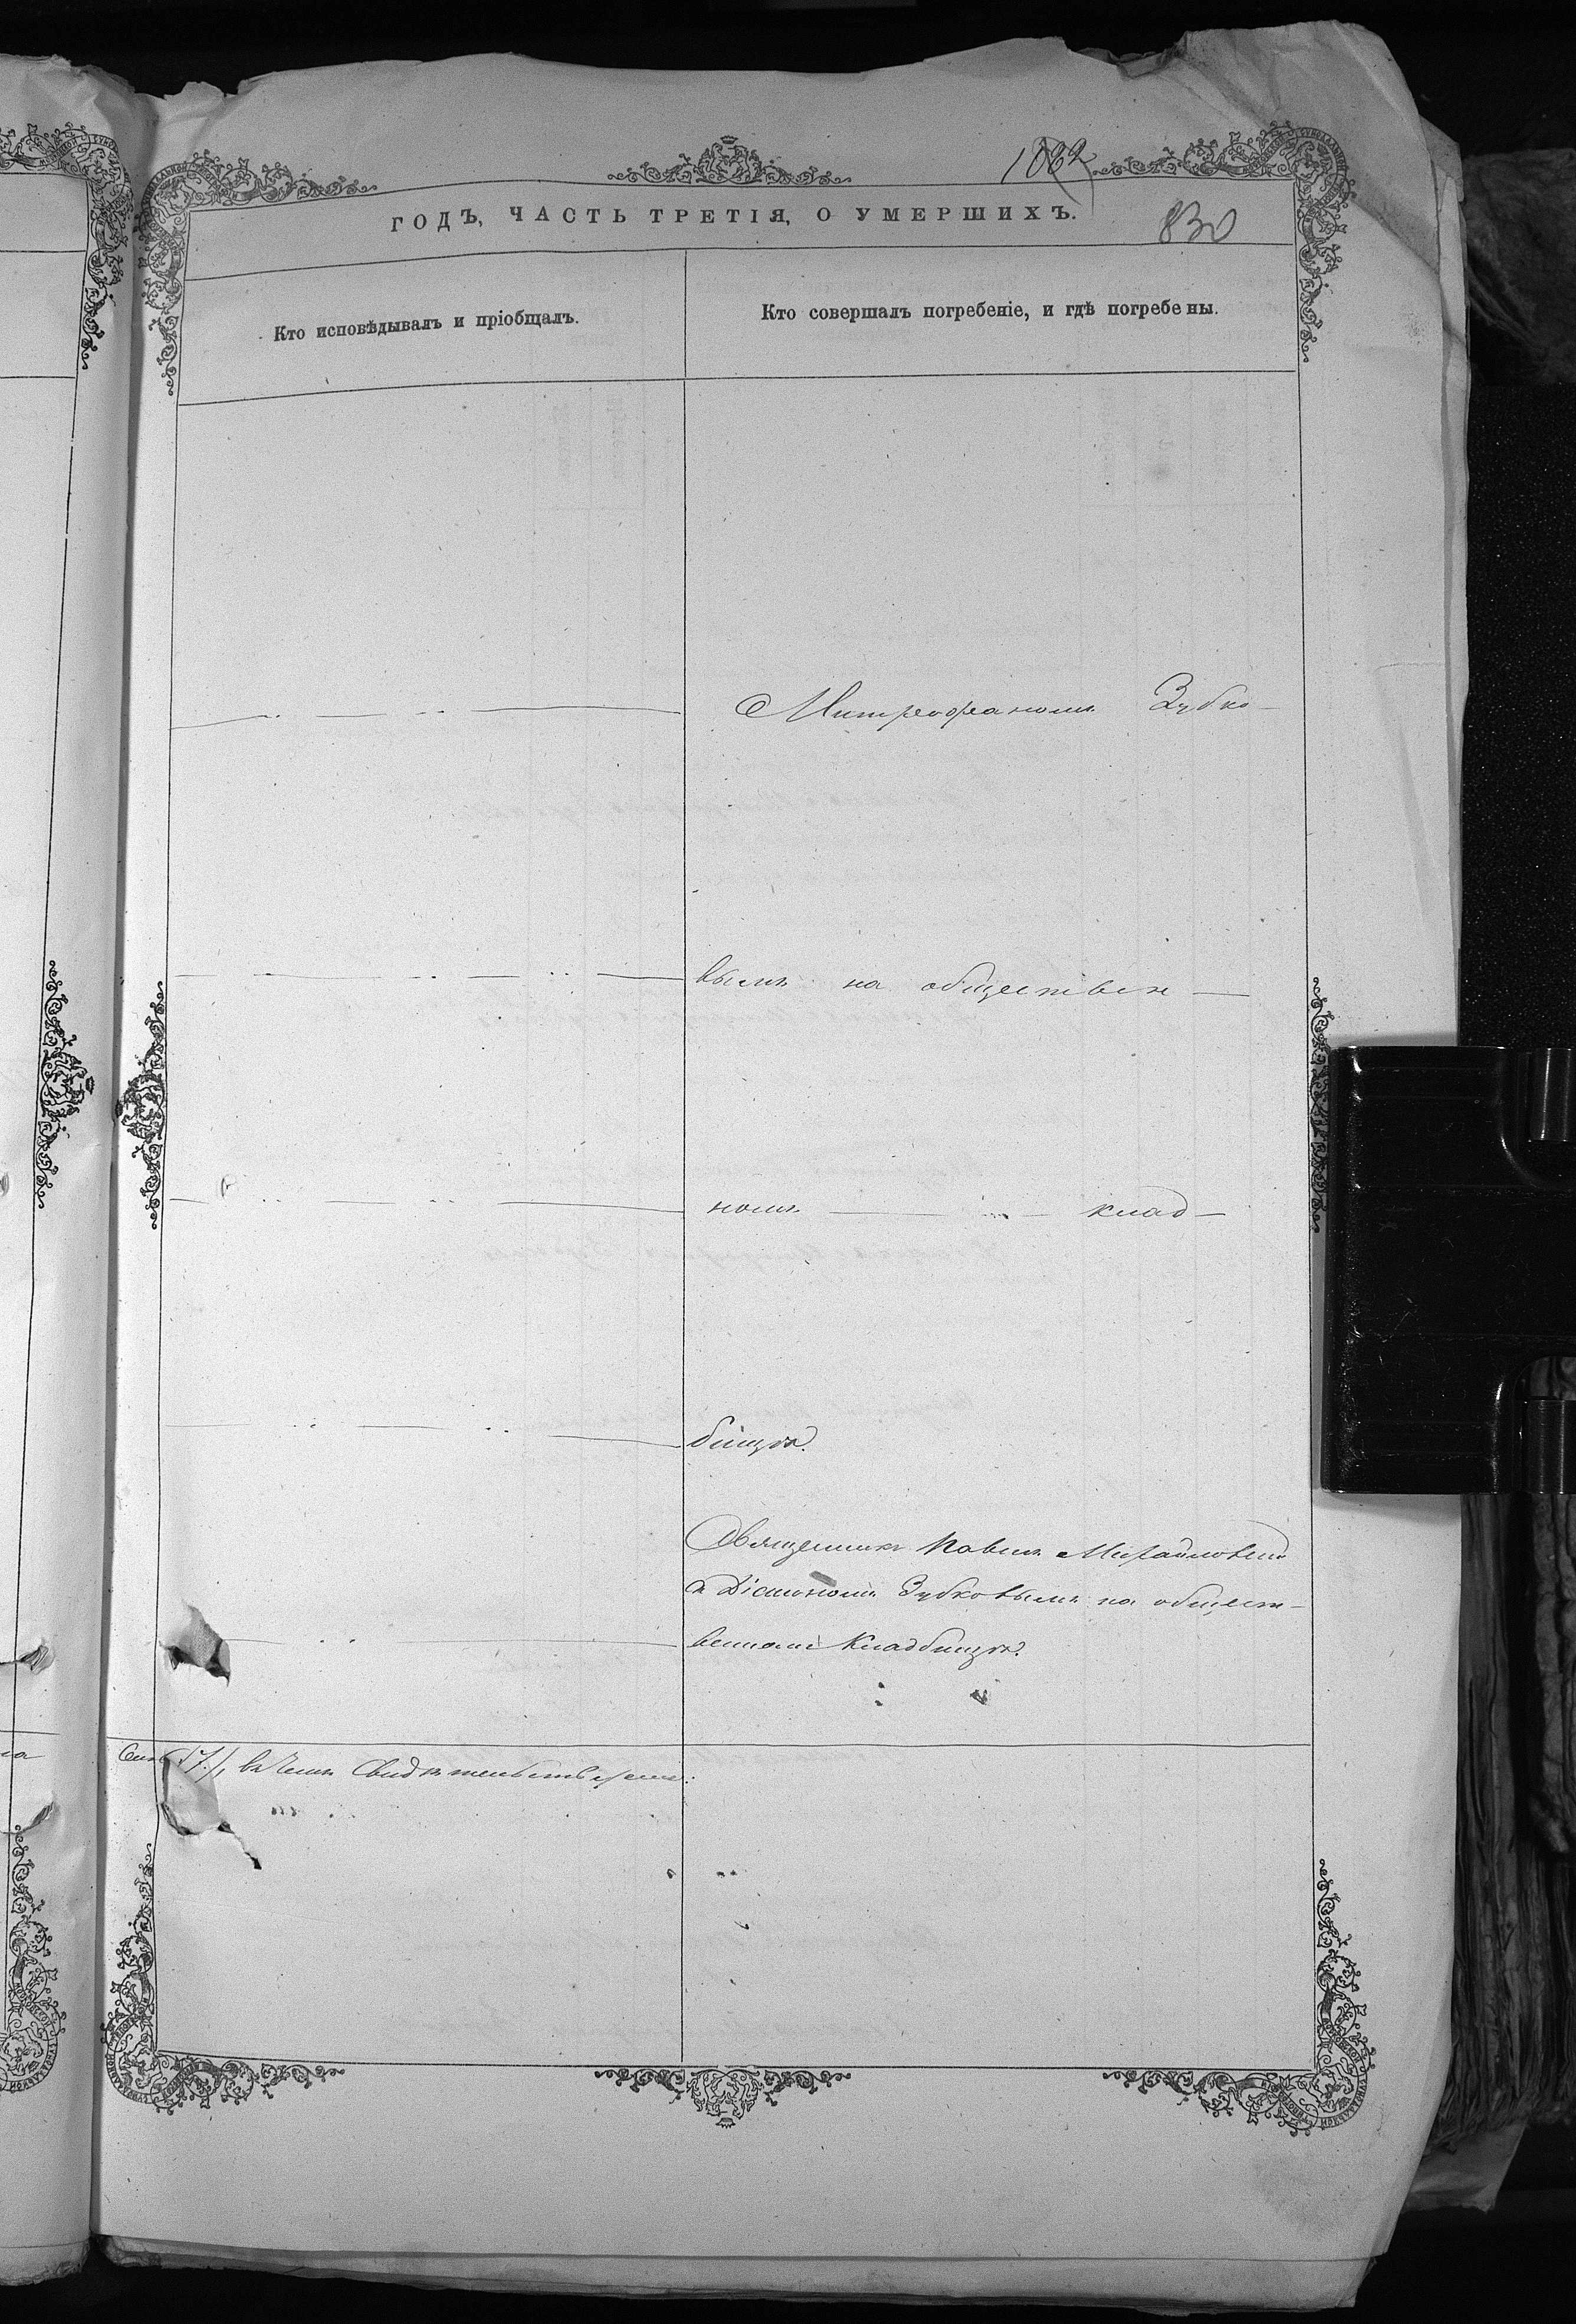 1082
ГОДЪ, ЧАСТЬ ТРЕТІЯ, О УМЕРШИХЪ.
830
Кто исповѣдывалъ и пріобщалъ.
Кто совершалъ погребеніе, и гдѣ погребены.
Митрофаномъ Зубко-
вымъ на обществен-
номъ клад-
бищѣ.
Священникъ Павелъ
съ Діакономъ Зубковымъ на общест-
венномъ Кладбищѣ.
въ чемъ Свидѣтельствуемъ: